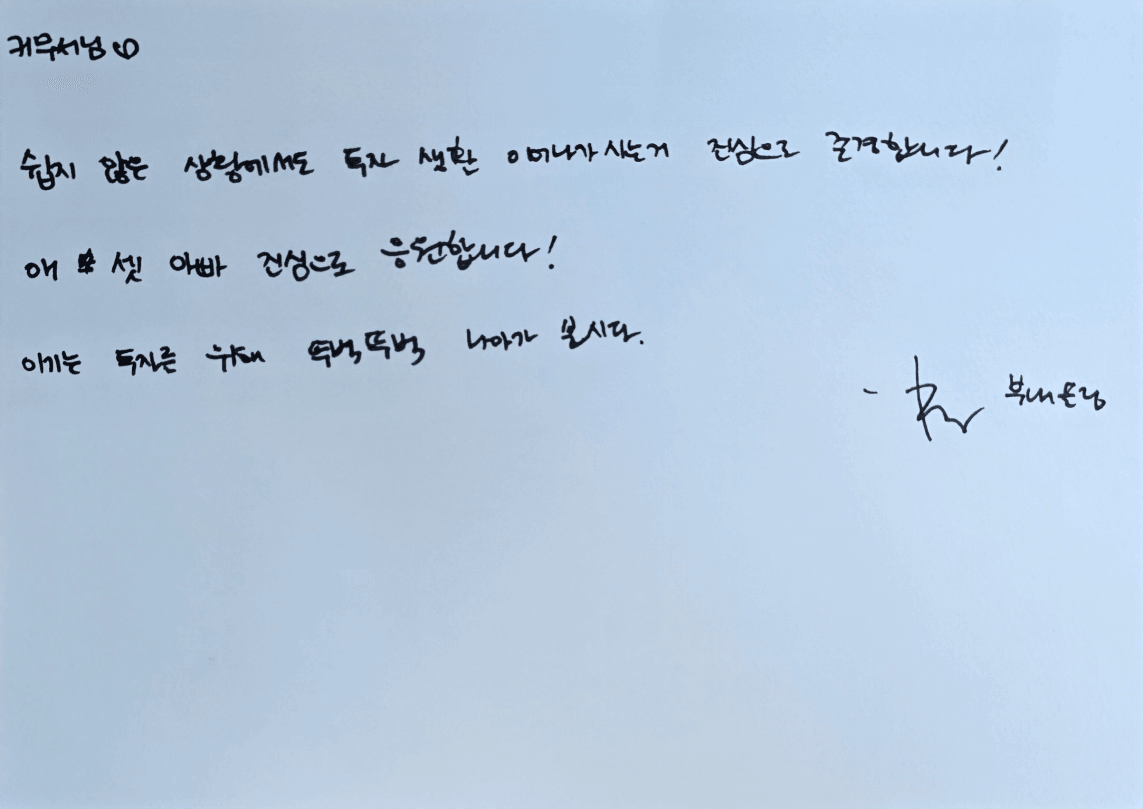 커무서님♡
쉽지 않은 상황에서도 투자 생환 이어나가시는거 진심으로 존경합니다!
애 셋 아빠 진심으로 응원합니다!
이기는 투자를 위해 뚜벅뚜벅 나아가 봅시다.
-